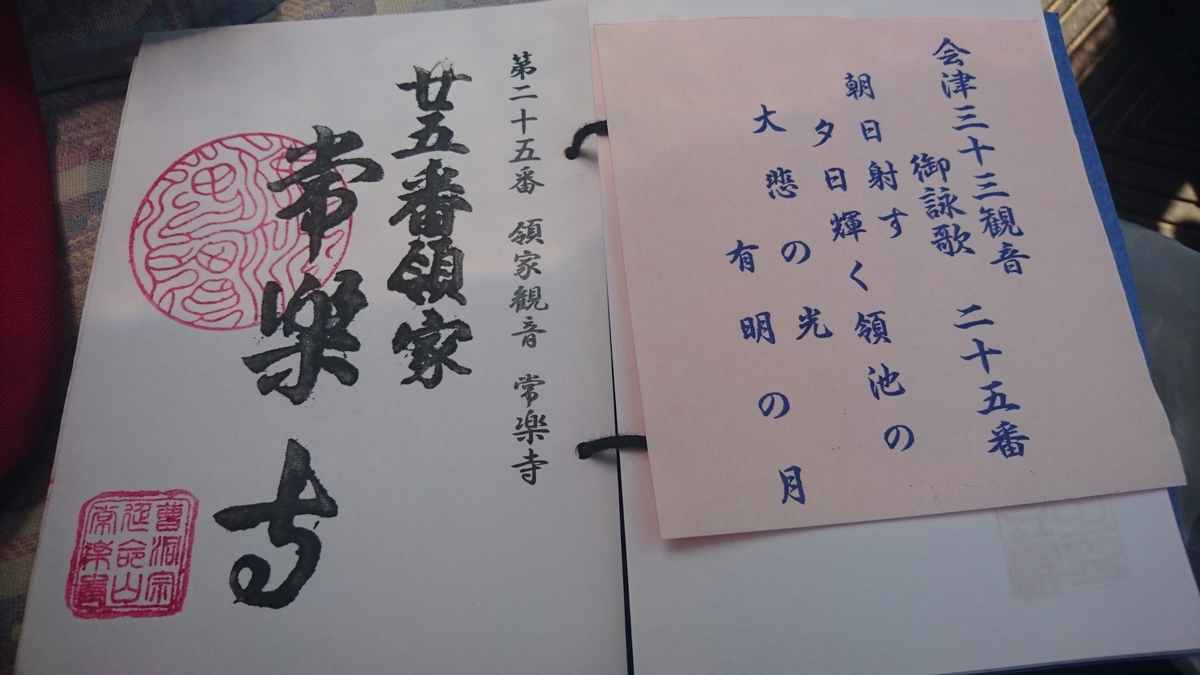 会津三十三観音 二十五番
御詠歌
朝日射す
夕日輝く領池の
大悲の光
有明の月
第二十五番 領家観音 常楽寺
廿五番領家
常楽寺
曹洞宗
延命山
常楽寺